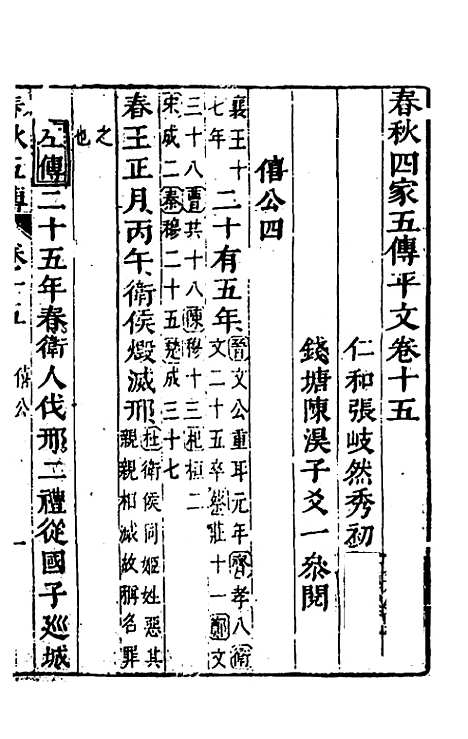 春秋四家五傳平文卷十五
仁和張岐然秀初
錢塘陳淏子爻一叅閱
僖公四
襄王十七年
二十有五年
晉文公重耳元年齊孝八衛文二十五卒蔡莊十一鄭文三十八曹共十八陳穆十三杞桓二宋成二秦穆二十五楚成三十七
春王正月丙午衛侯燬滅邢
杜衛侯同姬姓惡其親親相滅故稱名罪之也
左傳二十五年春衛人伐邢二禮從國子巡城
春秋五傳 卷十五 僖公 一